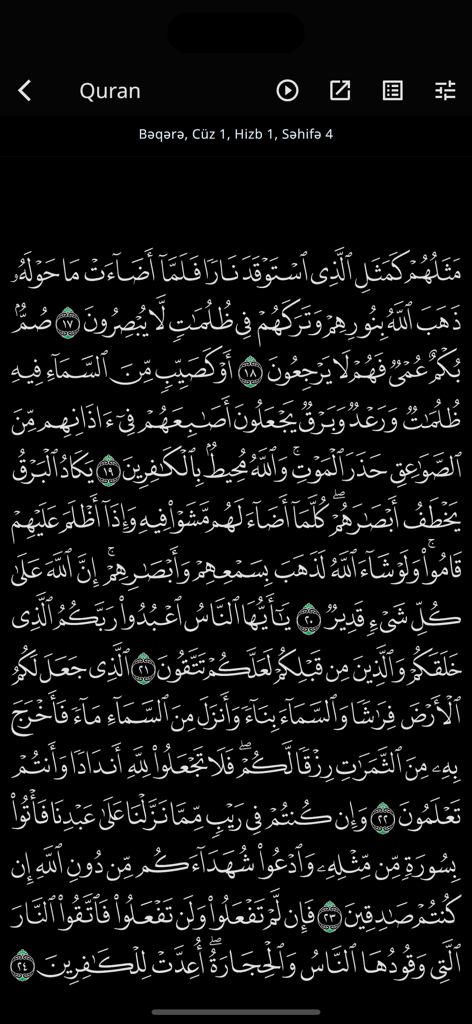 Quran
Bəqərə, Cüz 1, Hizb 1, Səhifə 4
مَثَلُهُمْ كَمَثَلِ ٱلَّذِى ٱسْتَوْقَدَ نَارًا فَلَمَّآ أَضَآءَتْ مَا حَوْلَهُۥ
ذَهَبَ ٱللَّهُ بِنُورِهِمْ وَتَرَكَهُمْ فِى ظُلُمَـٰتٍ لَّا يُبْصِرُونَ ١٧ صُمٌّۢ
بُكْمٌ عُمْىٌ فَهُمْ لَا يَرْجِعُونَ ١٨ أَوْ كَصَيِّبٍ مِّنَ ٱلسَّمَآءِ فِيهِ
ظُلُمَـٰتٌ وَرَعْدٌ وَبَرْقٌ يَجْعَلُونَ أَصَـٰبِعَهُمْ فِىٓ ءَاذَانِهِم مِّنَ
ٱلصَّوَٰعِقِ حَذَرَ ٱلْمَوْتِ ۚ وَٱللَّهُ مُحِيطٌۢ بِٱلْكَـٰفِرِينَ ١٩ يَكَادُ ٱلْبَرْقُ
يَخْطَفُ أَبْصَـٰرَهُمْ ۖ كُلَّمَآ أَضَآءَ لَهُم مَّشَوْا۟ فِيهِ وَإِذَآ أَظْلَمَ عَلَيْهِمْ
قَامُوا۟ ۚ وَلَوْ شَآءَ ٱللَّهُ لَذَهَبَ بِسَمْعِهِمْ وَأَبْصَـٰرِهِمْ ۚ إِنَّ ٱللَّهَ عَلَىٰ
كُلِّ شَىْءٍ قَدِيرٌ ٢٠ يَـٰٓأَيُّهَا ٱلنَّاسُ ٱعْبُدُوا۟ رَبَّكُمُ ٱلَّذِى
خَلَقَكُمْ وَٱلَّذِينَ مِن قَبْلِكُمْ لَعَلَّكُمْ تَتَّقُونَ ٢١ ٱلَّذِى جَعَلَ لَكُمُ
ٱلْأَرْضَ فِرَٰشًا وَٱلسَّمَآءَ بِنَآءً وَأَنزَلَ مِنَ ٱلسَّمَآءِ مَآءً فَأَخْرَجَ
بِهِۦ مِنَ ٱلثَّمَرَٰتِ رِزْقًا لَّكُمْ ۖ فَلَا تَجْعَلُوا۟ لِلَّهِ أَندَادًا وَأَنتُمْ
تَعْلَمُونَ ٢٢ وَإِن كُنتُمْ فِى رَيْبٍ مِّمَّا نَزَّلْنَا عَلَىٰ عَبْدِنَا فَأْتُوا۟
بِسُورَةٍ مِّن مِّثْلِهِۦ وَٱدْعُوا۟ شُهَدَآءَكُم مِّن دُونِ ٱللَّهِ إِن
كُنتُمْ صَـٰدِقِينَ ٢٣ فَإِن لَّمْ تَفْعَلُوا۟ وَلَن تَفْعَلُوا۟ فَٱتَّقُوا۟ ٱلنَّارَ
ٱلَّتِى وَقُودُهَا ٱلنَّاسُ وَٱلْحِجَارَةُ ۖ أُعِدَّتْ لِلْكَـٰفِرِينَ ٢٤